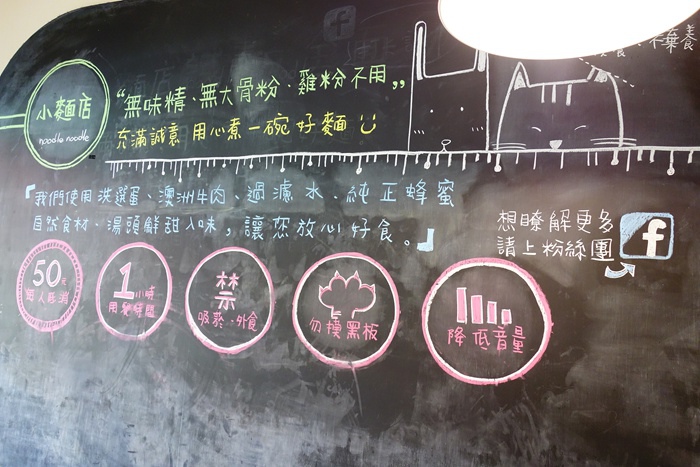 小麵店
noodle noodle
“無味精、無大骨粉、雞粉不用”
充滿誠意 用心煮一碗好麵
『我們使用洗選蛋、澳洲牛肉、過濾水、純正蜂蜜
自然食材、湯頭鮮甜入味，讓您放心好食。』
想瞭解更多
請上粉絲團
f
50元
每人低消
1小時
用餐時間
禁
吸菸、外食
勿摸黑板
降低音量